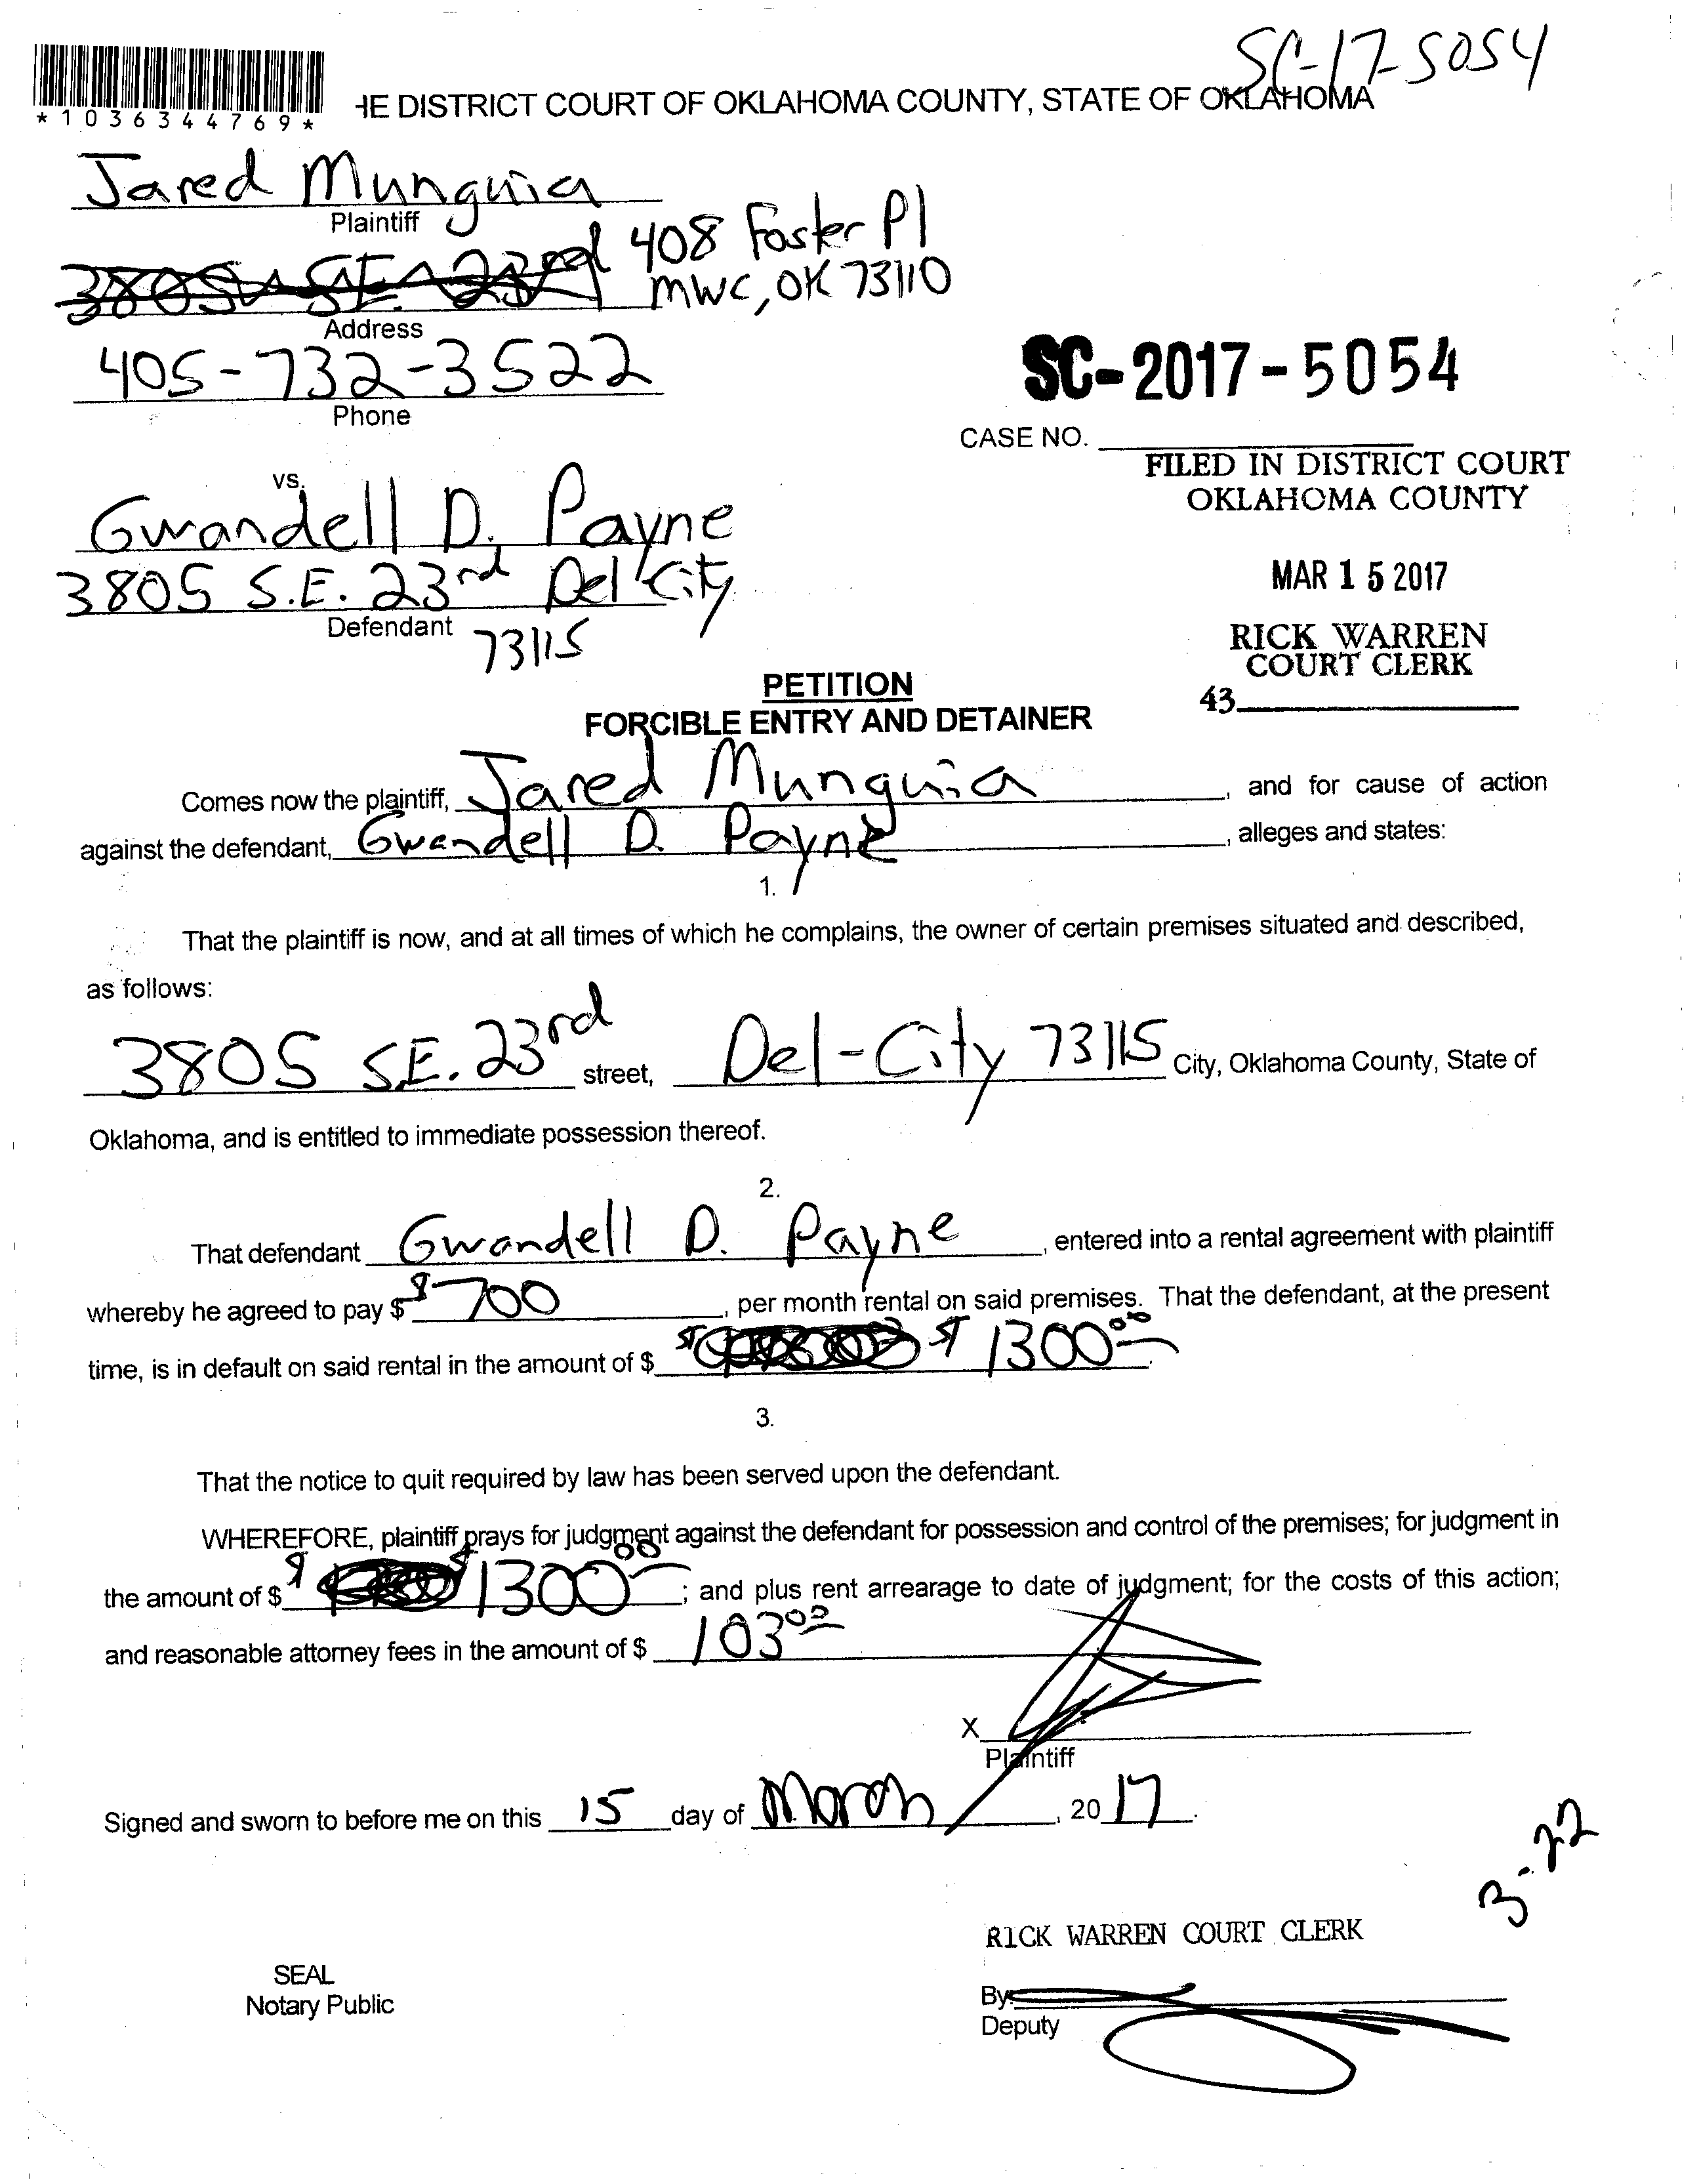 SC-17-5054
*1036344769*
HE DISTRICT COURT OF OKLAHOMA COUNTY, STATE OF OKLAHOMA
Jared Munguia
Plaintiff
3805 S.E. 23rd 408 Foster Pl
MWC, OK 73110
Address
405-732-3522
Phone
SC-2017-5054
CASE NO.
FILED IN DISTRICT COURT
OKLAHOMA COUNTY
MAR 15 2017
RICK WARREN
COURT CLERK
43
vs.
Gwandell D. Payne
3805 S.E. 23rd Del City
Defendant
73115
PETITION
FORCIBLE ENTRY AND DETAINER
Comes now the plaintiff, Jared Munguia, and for cause of action
against the defendant, Gwandell D. Payne, alleges and states:
1.
That the plaintiff is now, and at all times of which he complains, the owner of certain premises situated and described,
as follows:
3805 S.E. 23rd street, Del-City 73115 City, Oklahoma County, State of
Oklahoma, and is entitled to immediate possession thereof.
2.
That defendant Gwandell D. Payne, entered into a rental agreement with plaintiff
whereby he agreed to pay $ $700, per month rental on said premises. That the defendant, at the present
time, is in default on said rental in the amount of $ $ $1300.00.
3.
That the notice to quit required by law has been served upon the defendant.
WHEREFORE, plaintiff prays for judgment against the defendant for possession and control of the premises; for judgment in
the amount of $ $ $1300.00; and plus rent arrearage to date of judgment; for the costs of this action;
and reasonable attorney fees in the amount of $ 103.00
X
Plaintiff
Signed and sworn to before me on this 15 day of March, 2017.
3-22
RICK WARREN COURT CLERK
SEAL
Notary Public
By:
Deputy